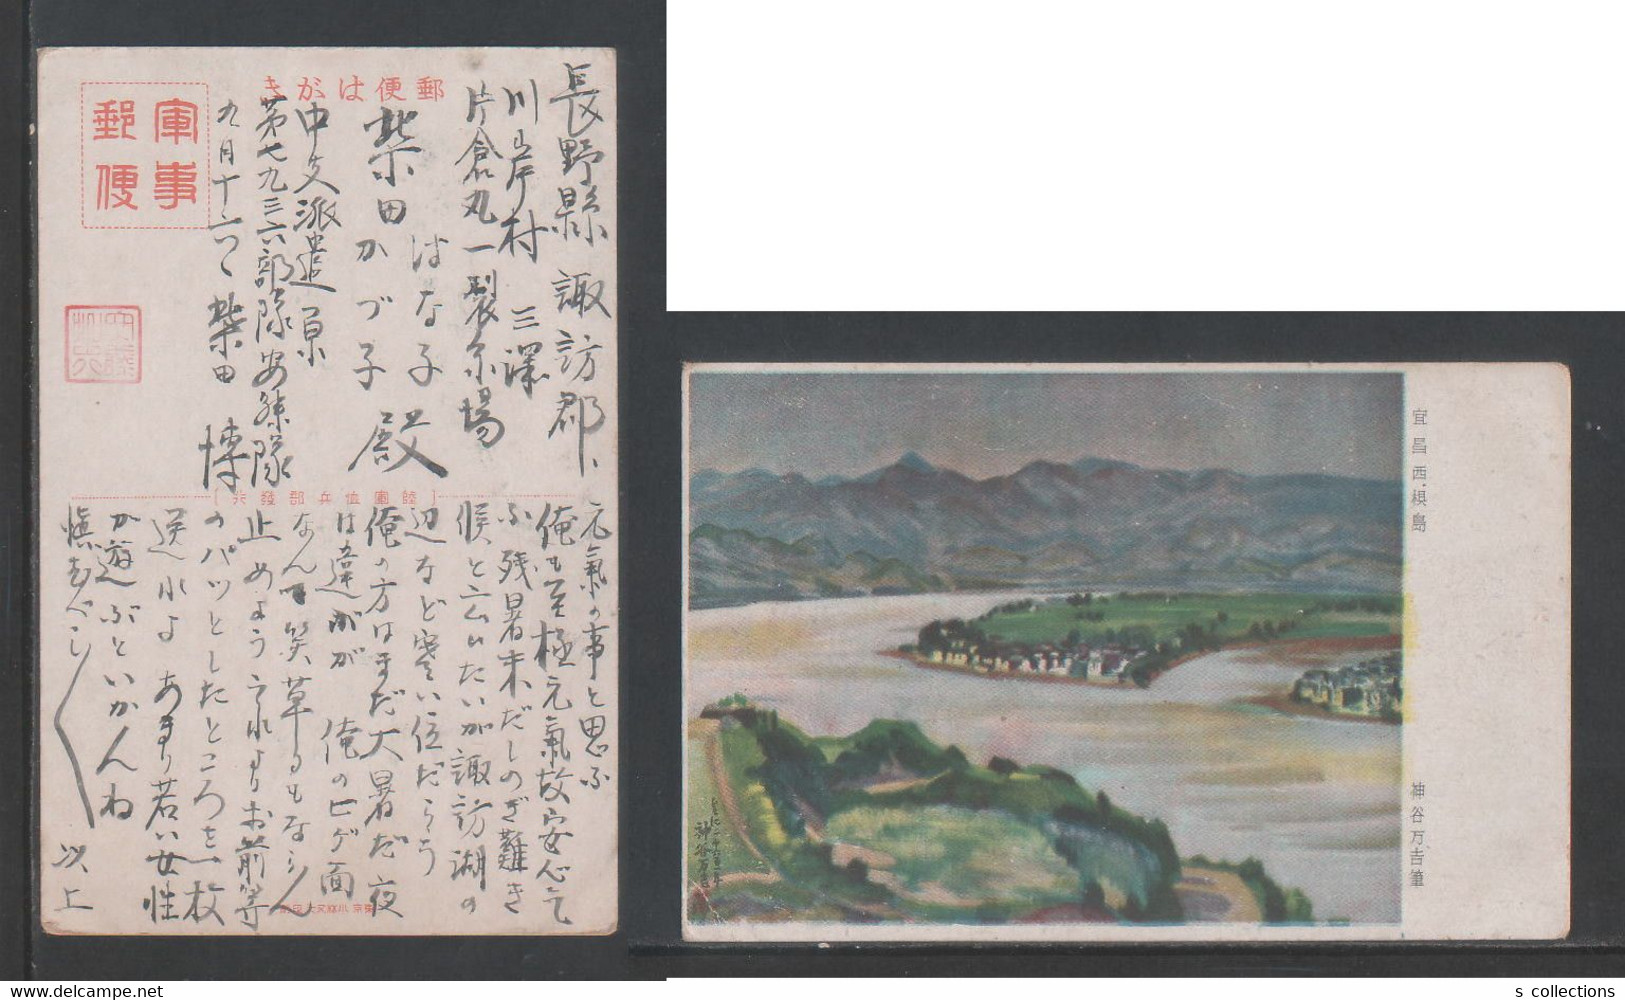 郵便はがき
軍事
郵便
長野縣諏訪郡、
川岸村 三澤
片倉丸一製糸場
はな子
柴田かづ子 殿
中支派遣 原
第七九三六部隊安藤隊
柴田 博
陸軍恤兵部發行
元氣の事と思ふ
俺も至極元氣故安心乞
ふ 残暑未だしのぎ難き
候と云ひたいが諏訪湖の
辺など寒い位だらう
俺の方はまだ大暑だ 夜
は違ふがが 俺のヒゲ面
なんて笑草るもならん
止めよう それよりお前等
のパツとしたところを一枚
送れよ あまり若い女性
が遊ぶといかんね
慎むべし
以上
宜昌西・梖島
神谷万吉筆
神谷万吉
s collections